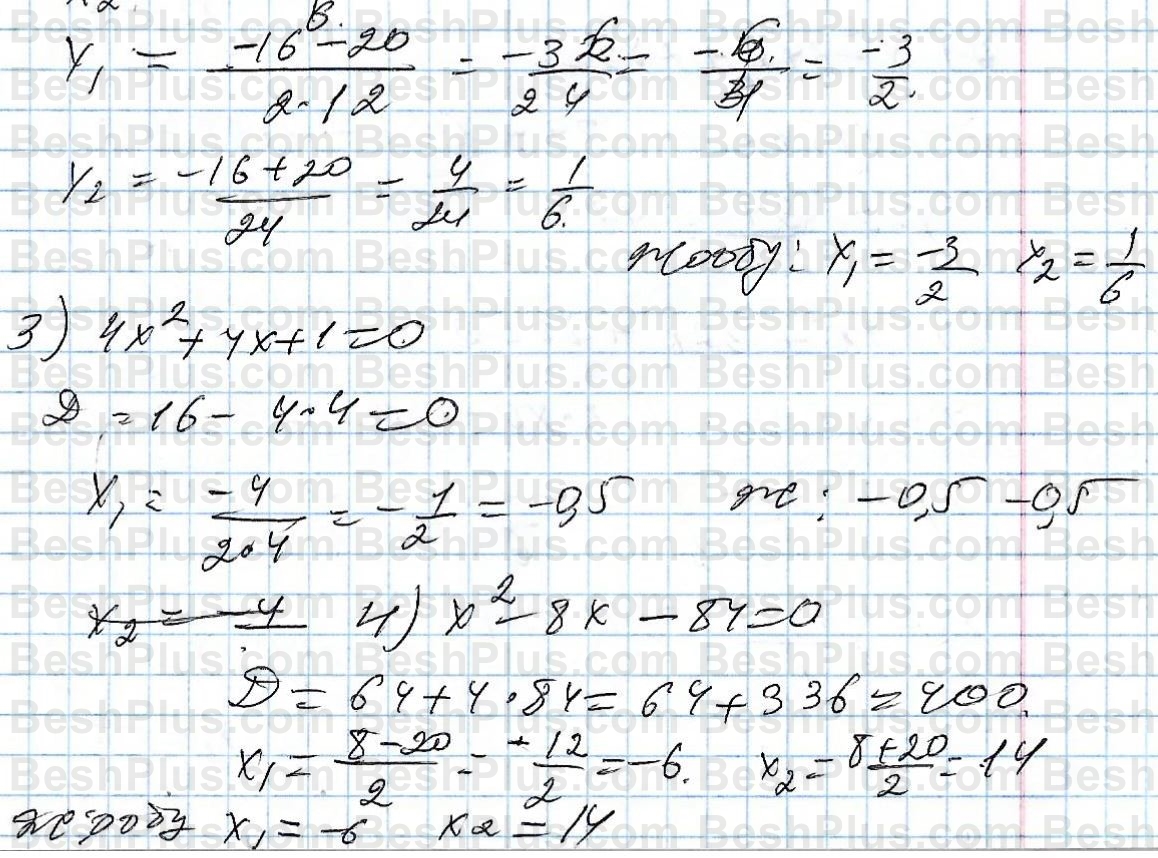 x₂
y₁ = (-16 - 20)/(2·12) = -36/24 = -6/4 = -3/2.
y₂ = (-16+20)/24 = 4/24 = 1/6.
жообу: x₁ = -3/2 x₂ = 1/6
3) 4x²+4x+1=0
D = 16 - 4·4 = 0
x₁ = -4/(2·4) = -1/2 = -0,5 ж: -0,5 -0,5
x₂ = -4 4) x² - 8x - 84 = 0
D = 64 + 4·84 = 64 + 336 = 400.
x₁ = (8-20)/2 = -12/2 = -6. x₂ = (8+20)/2 = 14
жообу x₁ = -6 x2 = 14
BeshPlus.com